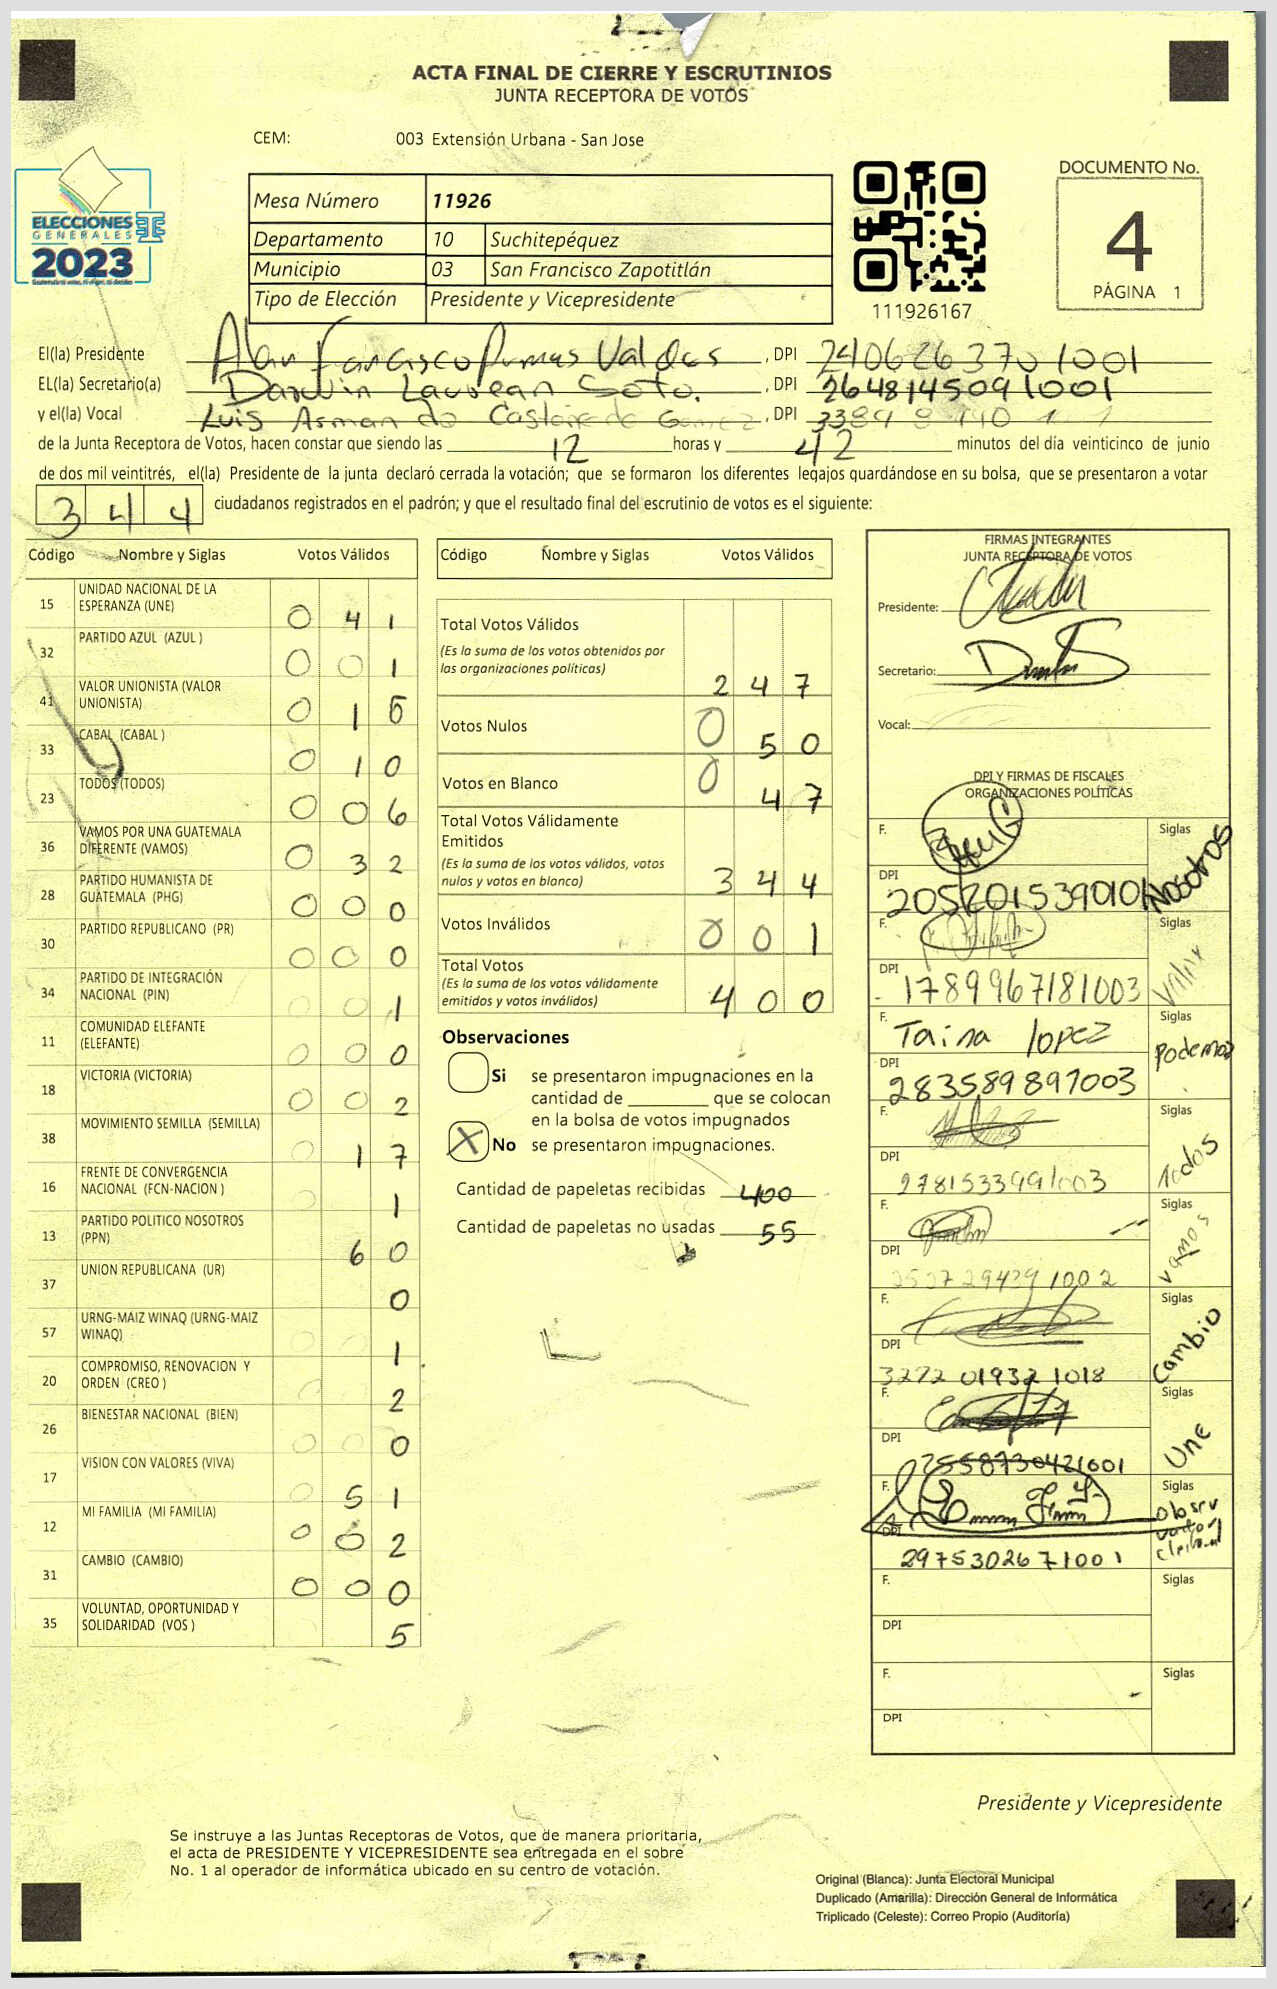 ACTA FINAL DE CIERRE Y ESCRUTINIOS
JUNTA RECEPTORA DE VOTOS
CEM: 003 Extensión Urbana - San Jose
ELECCIONES
GENERALES
2023
Mesa Número 11926
Departamento 10 Suchitepéquez
Municipio 03 San Francisco Zapotitlán
Tipo de Elección Presidente y Vicepresidente
111926167
DOCUMENTO No.
4
PÁGINA 1
El(la) Presidente Alan Francisco Valdes , DPI 2406263701001
EL(la) Secretario(a) Darwin Laurean Soto. , DPI 2648145091001
y el(la) Vocal Luis Armando , DPI
de la Junta Receptora de Votos, hacen constar que siendo las 12 horas y 42 minutos del día veinticinco de junio
de dos mil veintitrés, el(la) Presidente de la junta declaró cerrada la votación; que se formaron los diferentes legajos guardándose en su bolsa, que se presentaron a votar
344 ciudadanos registrados en el padrón; y que el resultado final del escrutinio de votos es el siguiente:
Código Nombre y Siglas Votos Válidos
15 UNIDAD NACIONAL DE LA ESPERANZA (UNE) 0 4 1
32 PARTIDO AZUL (AZUL ) 0 0 1
41 VALOR UNIONISTA (VALOR UNIONISTA) 0 1 5
33 CABAL (CABAL ) 0 1 0
23 TODOS (TODOS) 0 0 6
36 VAMOS POR UNA GUATEMALA DIFERENTE (VAMOS) 0 3 2
28 PARTIDO HUMANISTA DE GUATEMALA (PHG) 0 0 0
30 PARTIDO REPUBLICANO (PR) 0 0 0
34 PARTIDO DE INTEGRACIÓN NACIONAL (PIN) 0 0 1
11 COMUNIDAD ELEFANTE (ELEFANTE) 0 0 0
18 VICTORIA (VICTORIA) 0 0 2
38 MOVIMIENTO SEMILLA (SEMILLA) 0 1 7
16 FRENTE DE CONVERGENCIA NACIONAL (FCN-NACION ) 1
13 PARTIDO POLITICO NOSOTROS (PPN) 6 0
37 UNION REPUBLICANA (UR) 0
57 URNG-MAIZ WINAQ (URNG-MAIZ WINAQ) 1
20 COMPROMISO, RENOVACION Y ORDEN (CREO ) 2
26 BIENESTAR NACIONAL (BIEN) 0 0 0
17 VISION CON VALORES (VIVA) 0 5 1
12 MI FAMILIA (MI FAMILIA) 0 0 2
31 CAMBIO (CAMBIO) 0 0 0
35 VOLUNTAD, OPORTUNIDAD Y SOLIDARIDAD (VOS ) 5
Código Nombre y Siglas Votos Válidos
Total Votos Válidos
(Es la suma de los votos obtenidos por
las organizaciones políticas) 2 4 7
Votos Nulos 0 5 0
Votos en Blanco 0 4 7
Total Votos Válidamente
Emitidos
(Es la suma de los votos válidos, votos
nulos y votos en blanco) 3 4 4
Votos Inválidos 0 0 1
Total Votos
(Es la suma de los votos válidamente
emitidos y votos inválidos) 4 0 0
Observaciones
Si se presentaron impugnaciones en la
cantidad de ________ que se colocan
en la bolsa de votos impugnados
X No se presentaron impugnaciones.
Cantidad de papeletas recibidas 400
Cantidad de papeletas no usadas 55
FIRMAS INTEGRANTES
JUNTA RECEPTORA DE VOTOS
Presidente:
Secretario:
Vocal:
DPI Y FIRMAS DE FISCALES
ORGANIZACIONES POLÍTICAS
F. Siglas Nosotros
DPI 205201539010
F. Siglas
DPI 1789967181003
F. Taina lopez Siglas Podemos
DPI 283589897003
F. Siglas Todos
DPI 2781533991003
F. Siglas vamos
DPI
F. Siglas Cambio
DPI 3272019321018
F. Siglas Une
DPI 2558730421001
F. Siglas
DPI 2975302671001
F. Siglas
DPI
F. Siglas
DPI
Presidente y Vicepresidente
Se instruye a las Juntas Receptoras de Votos, que de manera prioritaria,
el acta de PRESIDENTE Y VICEPRESIDENTE sea entregada en el sobre
No. 1 al operador de informática ubicado en su centro de votación.
Original (Blanca): Junta Electoral Municipal
Duplicado (Amarilla): Dirección General de Informática
Triplicado (Celeste): Correo Propio (Auditoría)